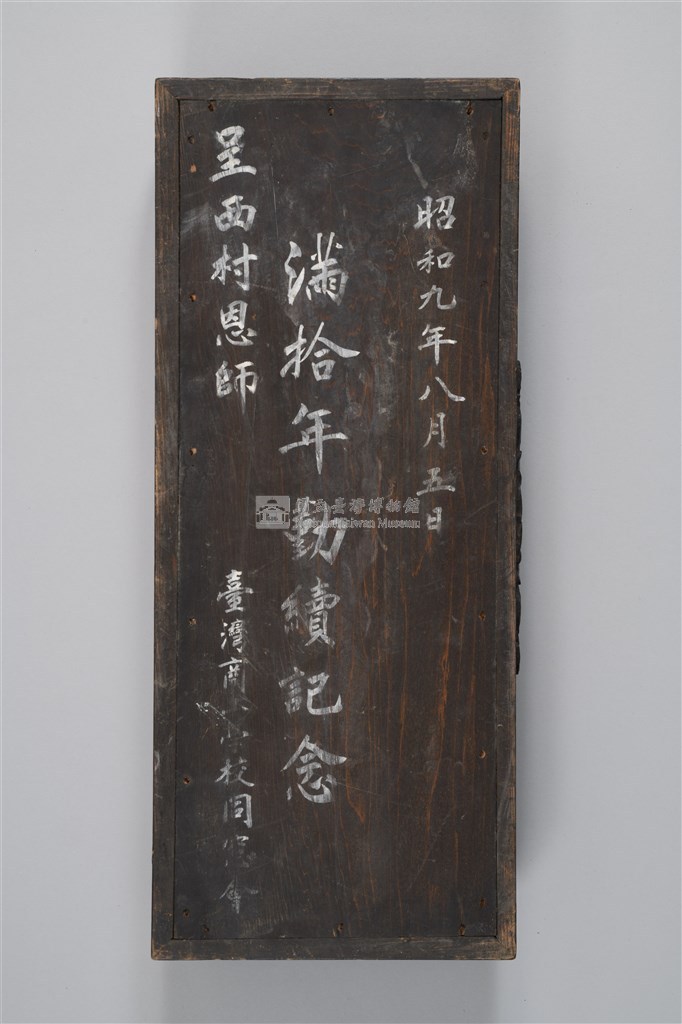 昭和九年八月五日
滿拾年勤續記念
呈西村恩師
臺灣商工學校同窓會
國立臺灣博物館
National Taiwan Museum